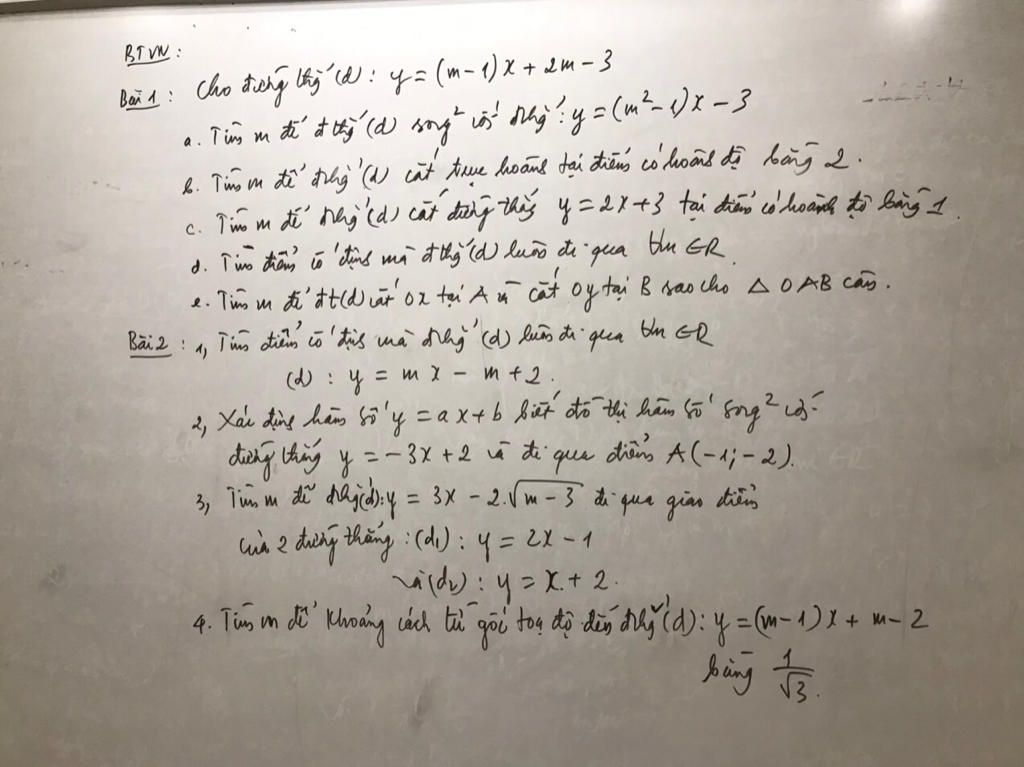 BTVN :
Bài 1 : Cho đường thẳng (d) : y = (m-1)x + 2m - 3
a. Tìm m để đ thg (d) song² với đthg : y = (m² - 1)x - 3
b. Tìm m để đthg (d) cắt trục hoành tại điểm có hoành độ bằng 2.
c. Tìm m để đthg (d) cắt đường thẳng y = 2x+3 tại điểm có hoành độ bằng 1.
d. Tìm điểm cố định mà đthg (d) luôn đi qua ∀m ∈ R.
e. Tìm m để đt (d) cắt Ox tại A và cắt Oy tại B sao cho △ OAB cân.
Bài 2 : 1, Tìm điểm cố định mà đthg (d) luôn đi qua ∀m ∈ R
(d) : y = mx - m + 2.
2, Xác định hàm số y = ax+b biết đồ thị hàm số song² với
đường thẳng y = -3x+2 và đi qua điểm A(-1; -2).
3, Tìm m để đthg (d): y = 3x - 2.√m-3 đi qua giao điểm
của 2 đường thẳng : (d₁) : y = 2x - 1
và (d₂) : y = x + 2.
4. Tìm m để khoảng cách từ gốc toạ độ đến đthg (d): y = (m-1)x + m-2
bằng 1/√3.